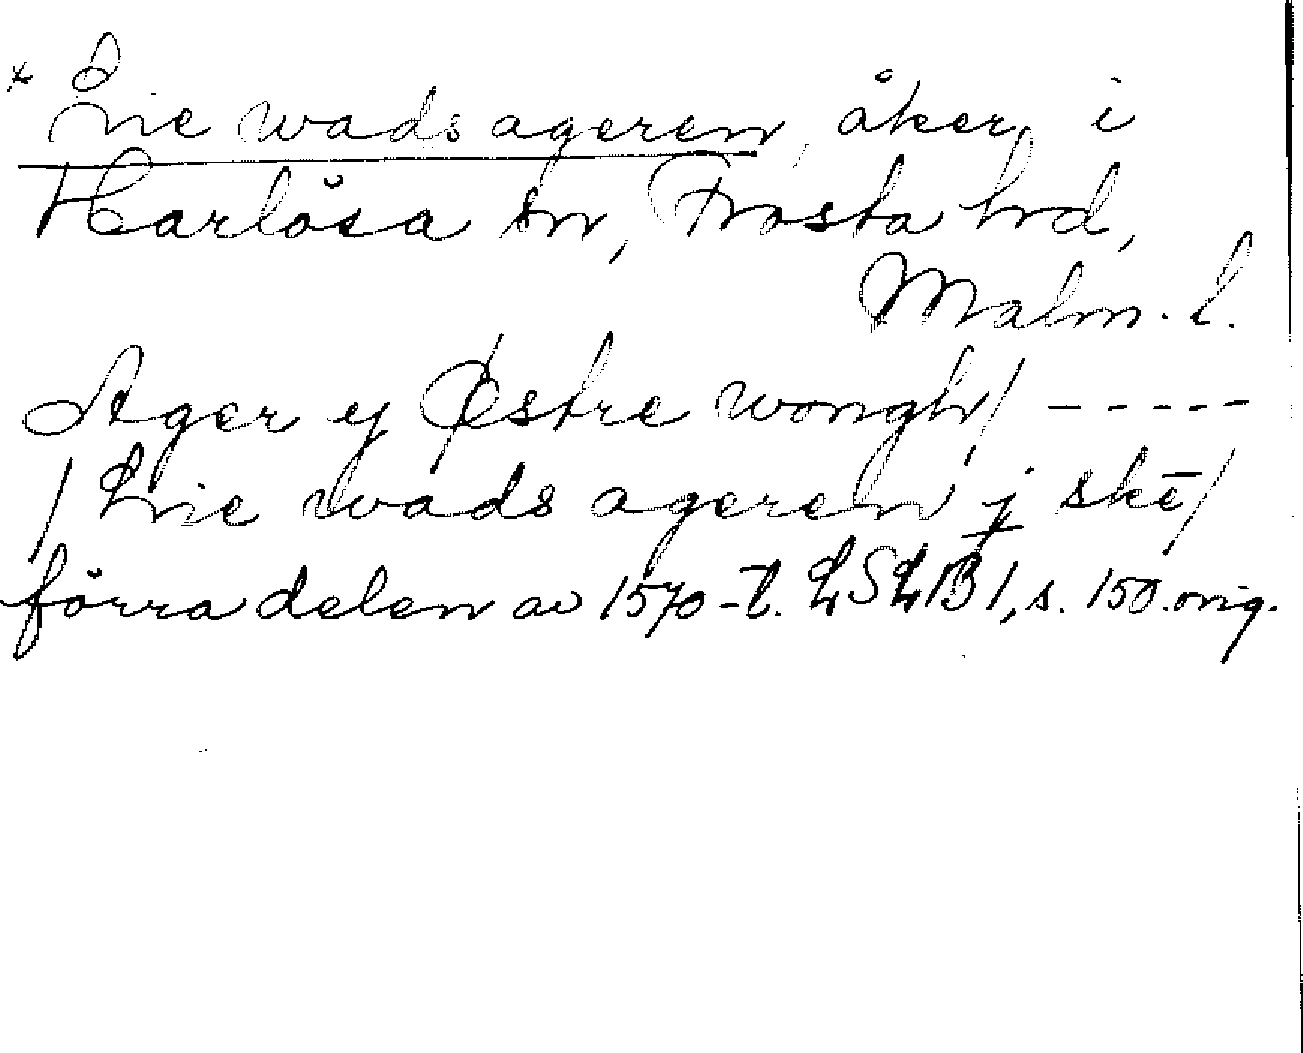 * Lnie wads ageren, åker, i
Harlösa sn, Frosta hd,
Malm. l.
Ager y Østre wongh / -----
/ Lnie wads ageren j skē /
förra delen av 1570-t. LSLB 1, s. 150. orig.